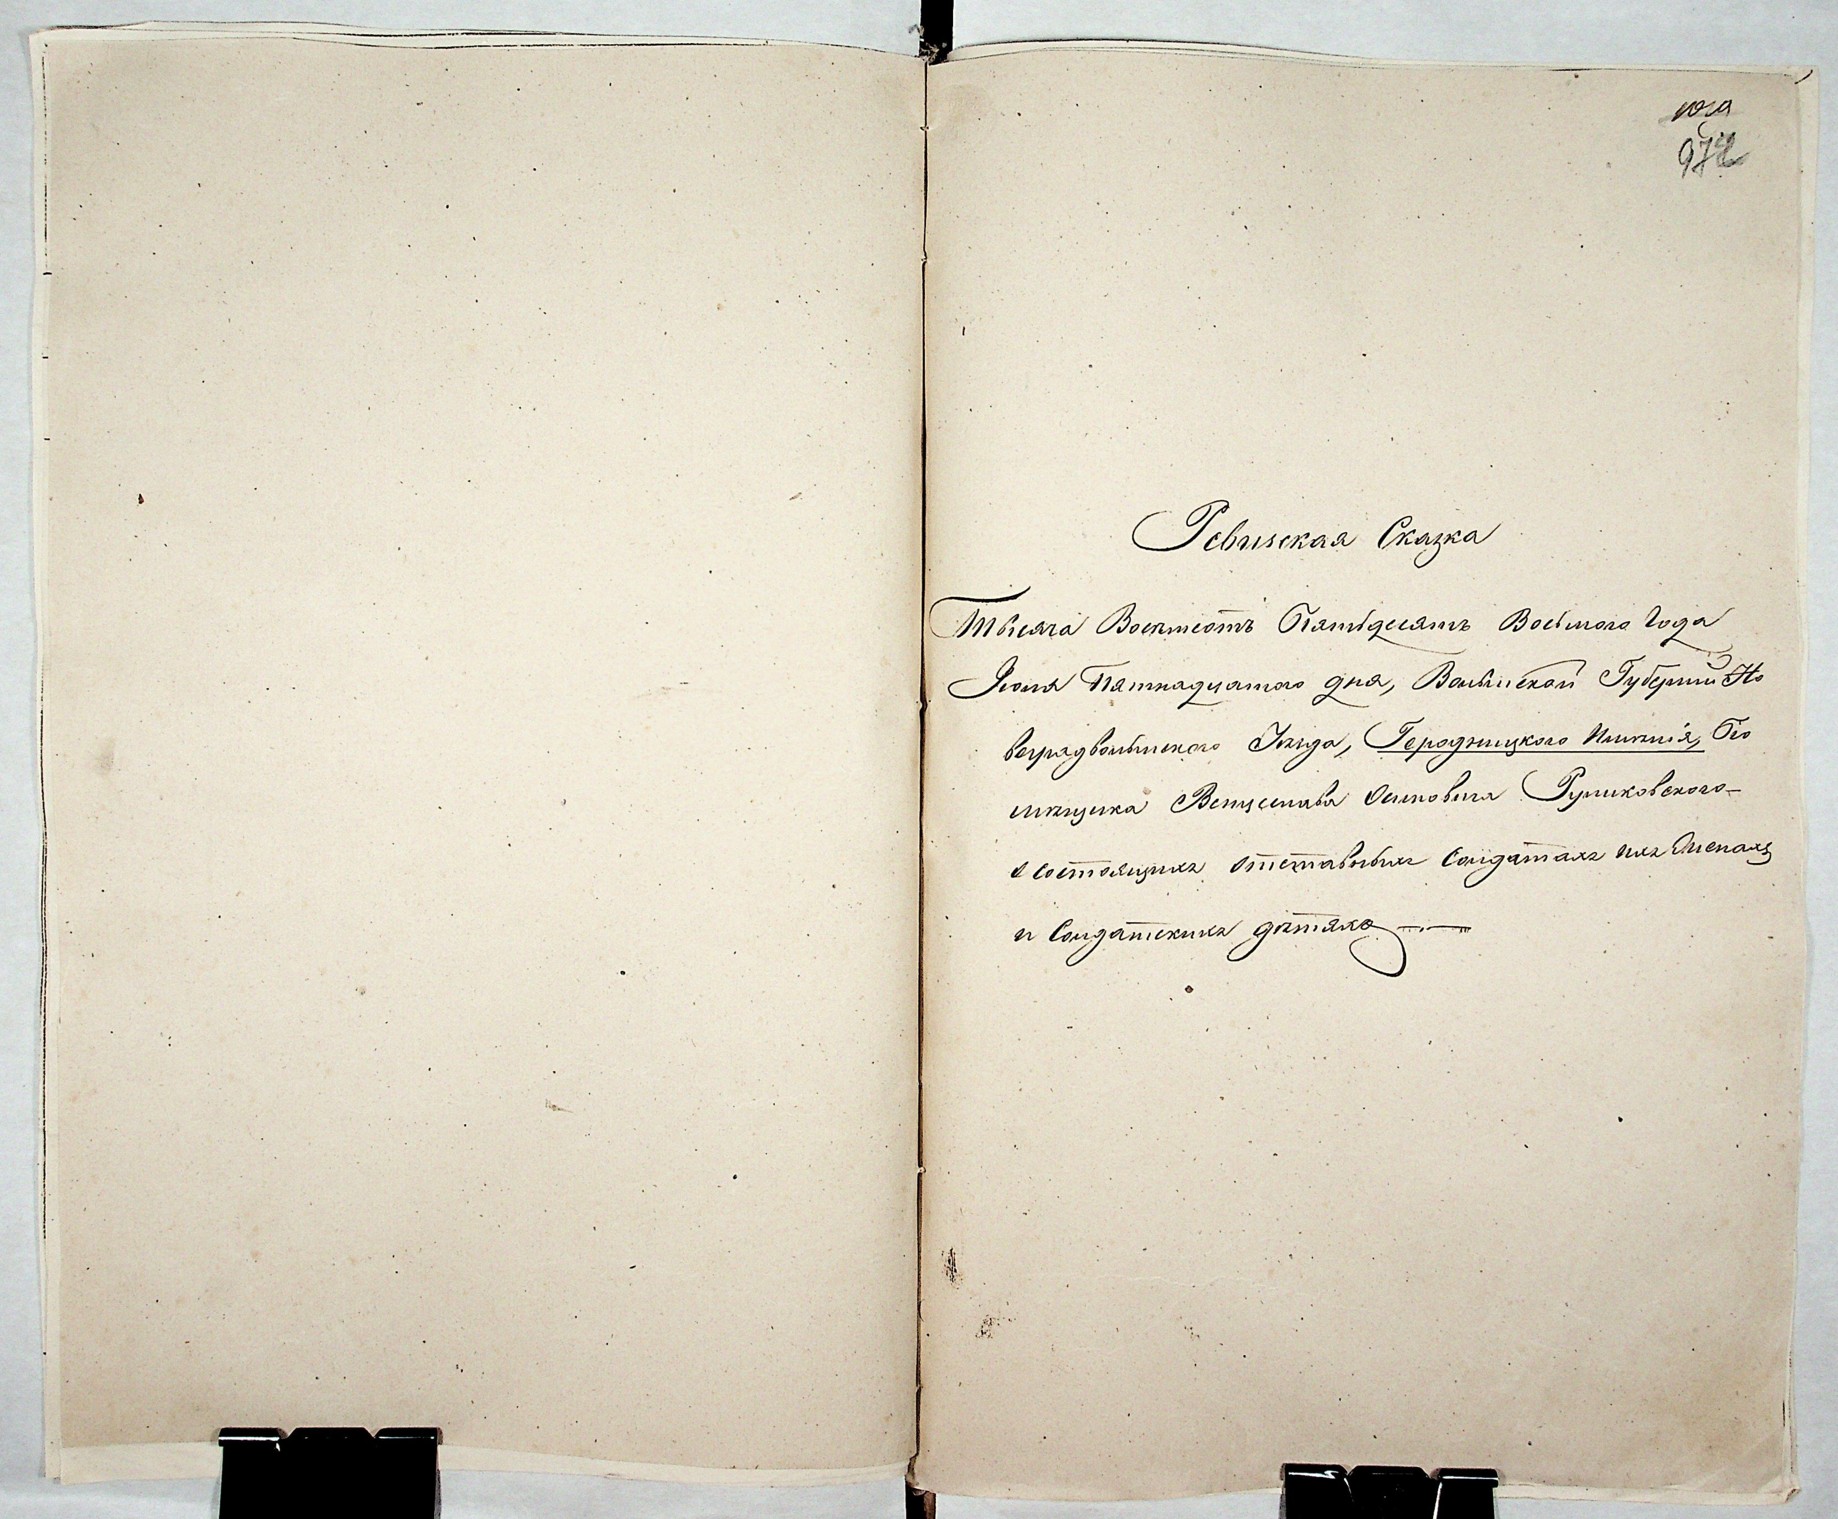 972
Ревизская Сказка
Тысяча Восемьсотъ Пятьдесятъ Восьмого Года
Іюля Пятнадцатого дня, Волынской Губерніи Но
воградволынского Уѣзда, Городницкого Имѣнія, По
мѣщика Венцеслава Осиповича Руликовского
о состоящихъ отставныхъ Солдатахъ ихъ Женахъ
и Солдатскихъ дѣтяхъ